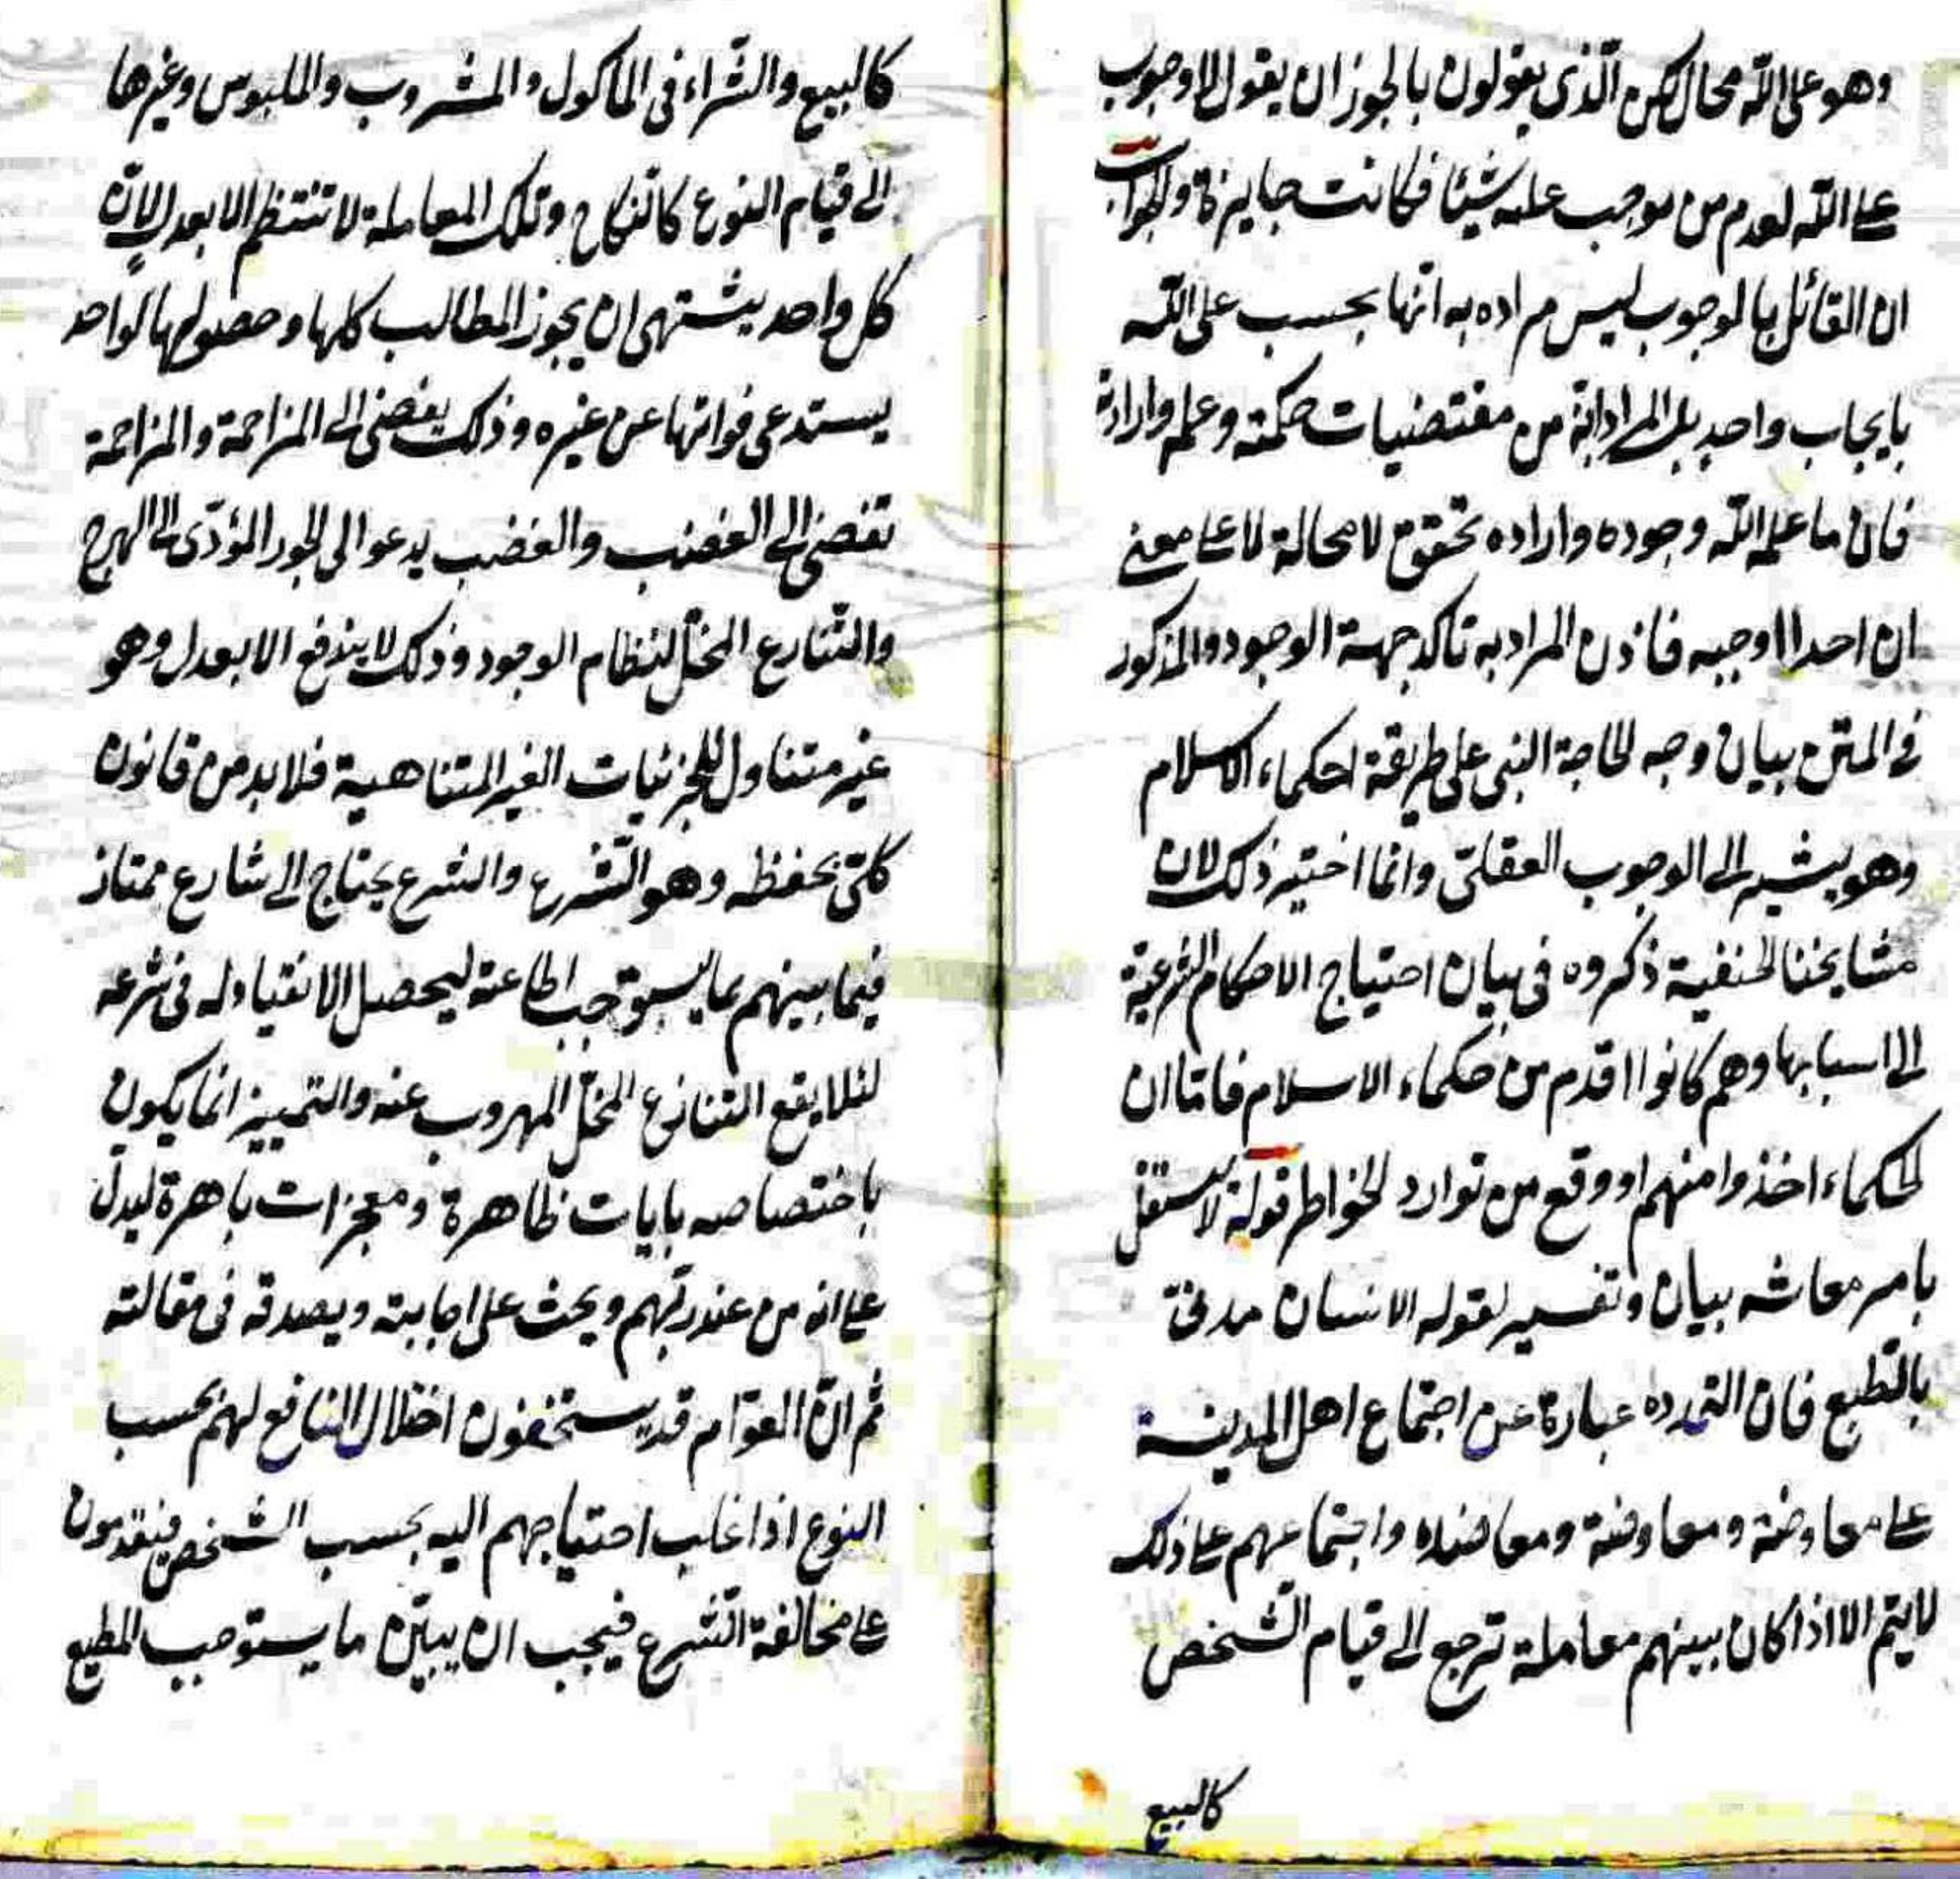 وهو على الله محال لكن الذى يقولون بالجوز ان يقول لا وجوب
على الله لعدم من يوجب عليه شيئا فكانت جايزة والجواب
ان القائل بالوجوب ليس مراده به انها بحسب على الله
بايجاب واحد بل المراد انه من مقتضيات حكمته وعلمه وارادته
فان ما علم الله وجوده واراده تحقق لا محالة لا على معنى
ان احدا اوجبه فاذن المراد به تاكد جهة الوجود والمذكور
فى المتن بيان وجه لحاجة النبى على طريقة احكماء الاسلام
وهو يشير الى الوجوب العقلى وانما اختير ذلك لان
مشايخنا الحنفية ذكروه فى بيان احتياج الاحكام الشرعية
الى اسبابها وهم كانوا اقدم من حكماء الاسلام فاما ان
الحكماء اخذوا منهم او وقع من توارد الخواطر قوله لا يستقل
بامر معاشه بيان وتفسير لقوله الانسان مدنى
بالطبع فان التمدده عبارة عن اجتماع اهل المدينة
على معاوضة ومعاوضة ومعاضده واجتماعهم على ذلك
لا يتم الا اذا كان بينهم معاملة ترجع الى قيام الشخص
كالبيع
كالبيع والشراء فى المأكول والمشروب والملبوس وغيرها
الى قيام النوع كالنكاح وتلك المعاملة لا تنتظم الا بعدل لان
كل واحد يشتهى ان يحوز المطالب كلها وحصولها لواحد
يستدعى فواتها عن غيره وذلك يفضى الى المزاحمة والمزاحمة
تفضى الى الغضب والغضب يدعو الى الجور المؤدى الى الهرج
والتنازع المخل لنظام الوجود وذلك لا يندفع الا بعدل وهو
غير متناول للجزئيات الغير المتناهية فلا بد من قانون
كلى يحفظه وهو الشرع والشرع يحتاج الى شارع ممتاز
فيما بينهم بما يستوجب اطاعته ليحصل الانقياد له فى شرعه
لئلا يقع التنازع المخل المهروب عنه والتمييز انما يكون
باختصاصه بايات ظاهرة ومعجزات باهرة ليدل
على انه من عند ربهم ويحث على اجابته ويصدقه فى مقالته
ثم ان العوام قد يستخفون اختلال النافع لهم بحسب
النوع اذا غلب احتياجهم اليه بحسب الشخص فيقدمون
على مخالفة الشرع فيجب ان يبين ما يستوجب المطيع